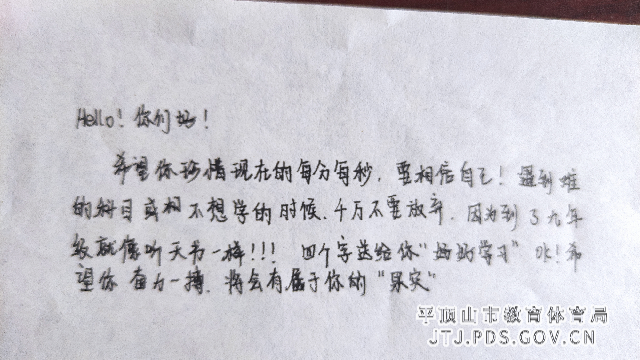 Hello! 你们好!
希望你珍惜现在的每分每秒，要相信自己! 遇到难
的科目或相不想学的时候，千万不要放弃，因为到了九年
级就像听天书一样!!! 四个字送给你“好好学习” 哦!希
望你 奋力一搏，将会有属于你的“果实”
平顶山市教育体育局
JTJ.PDS.GOV.CN